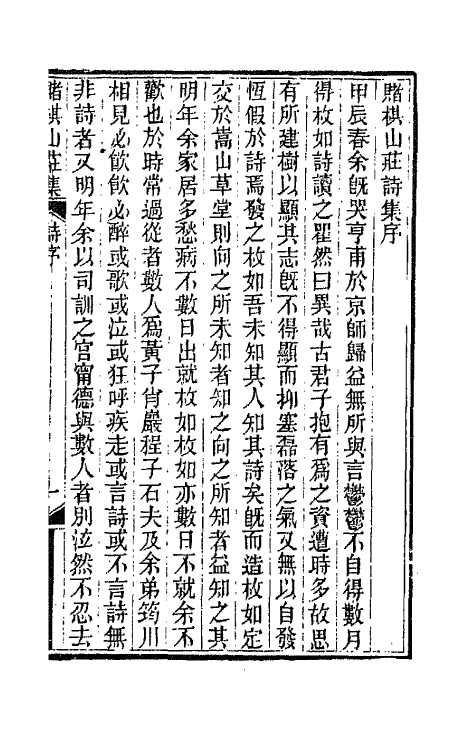 賭棋山莊詩集序
甲辰春余旣哭亨甫於京師歸益無所與言鬱鬱不自得數月
得枚如詩讀之瞿然曰異哉古君子抱有爲之資遭時多故思
有所建樹以顯其志旣不得顯而抑塞磊落之氣又無以自發
恆假於詩焉發之枚如吾未知其人知其詩矣旣而造枚如定
交於嵩山草堂則向之所未知者知之向之所知者益知之其
明年余家居多愁病不數日出就枚如枚如亦數日不就余不
歡也於時常過從者數人爲黃子肖巖程子石夫及余弟筠川
相見必飮飮必醉或歌或泣或狂呼疾走或言詩或不言詩無
非詩者又明年余以司訓之官甯德與數人者別泣然不忍去
賭棋山莊集
詩序
一